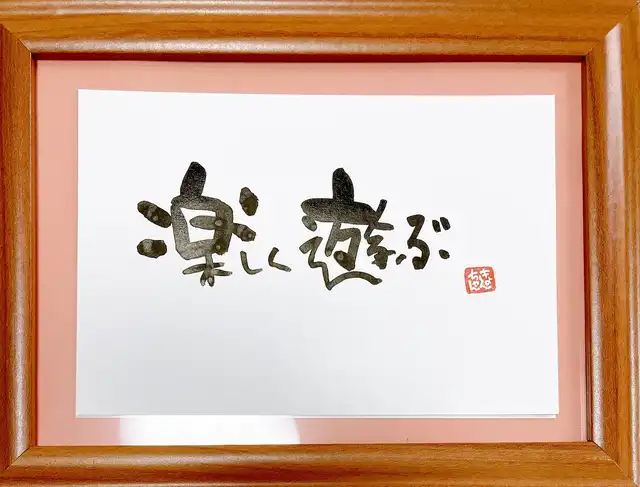 楽しく遊ぶ